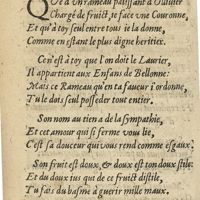 QVe d'vn rameau palissant d'Oliuier
Chargé de fruict, se face vne Couronne,
Et qu'à toy seul entre tous ie la donne,
Comme en estant le plus digne heritier.
Cen'est à toy que l'on doit le Laurier,
Il appartient aux Enfans de Bellonne:
Mais ce Rameau qu'en ta faueur i'ordonne,
Tu le dois seul posseder tout entier.
Son nom au tien a de la sympathie,
Et cet amour qui si ferme vous lie,
C'est sa douceur qui vous rend comme esgaux.
Son fruit est doux, & doux est ton doux stile:
Et du doux ius qui de ce fruict distile,
Tu fais du basme à guerir mille maux.